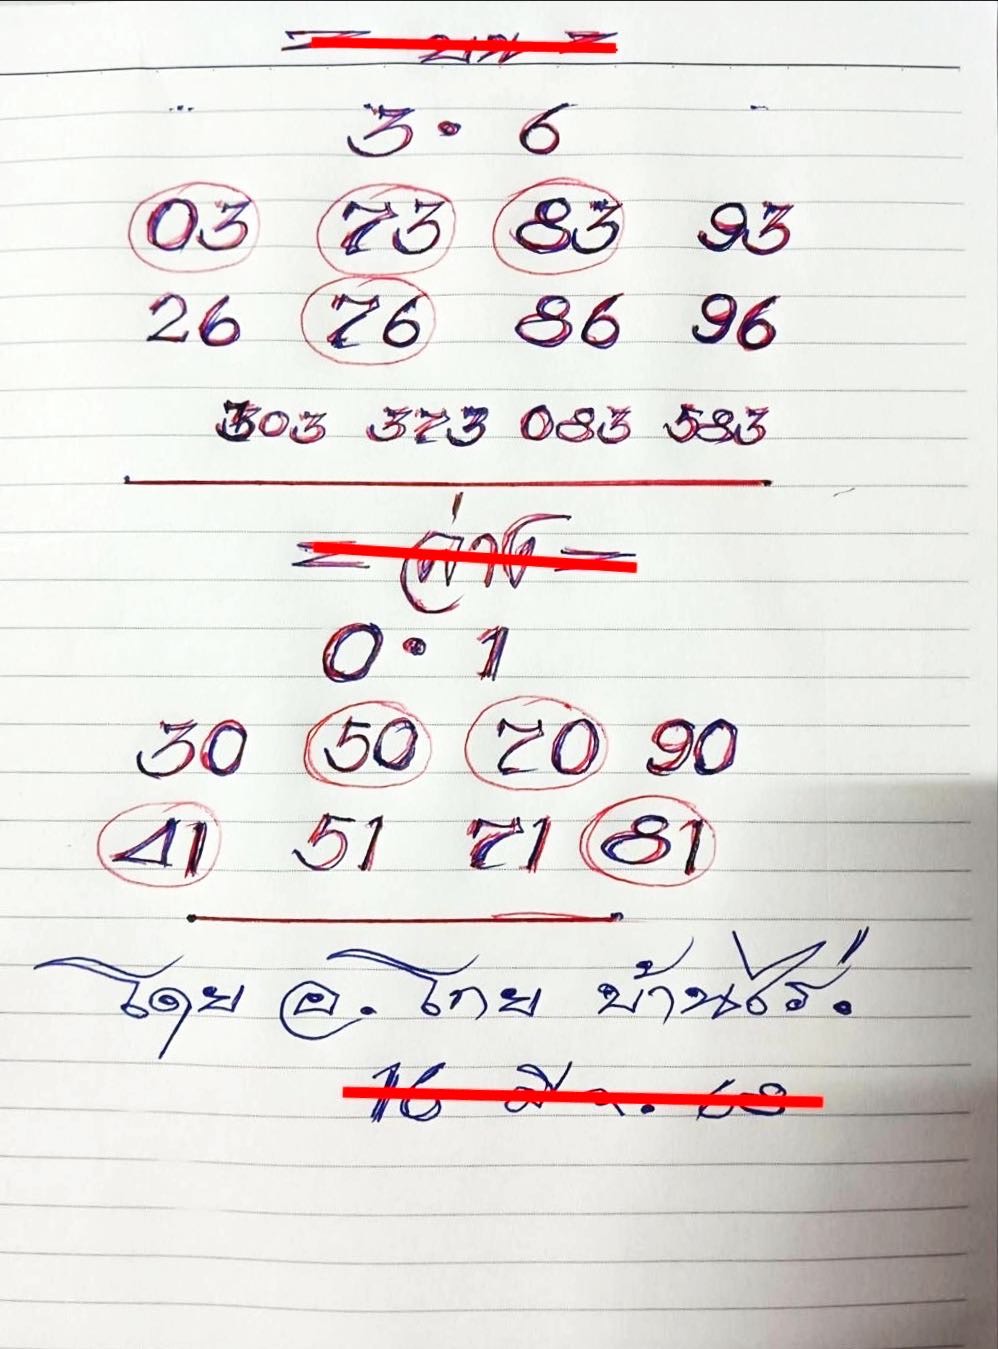 = บน =
3 • 6
03 73 83 93
26 76 86 96
303 373 083 583
= ล่าง =
0 • 1
30 50 70 90
41 51 71 81
โดย อ. โทย บ้านไร่.
16 มี.ค. 68